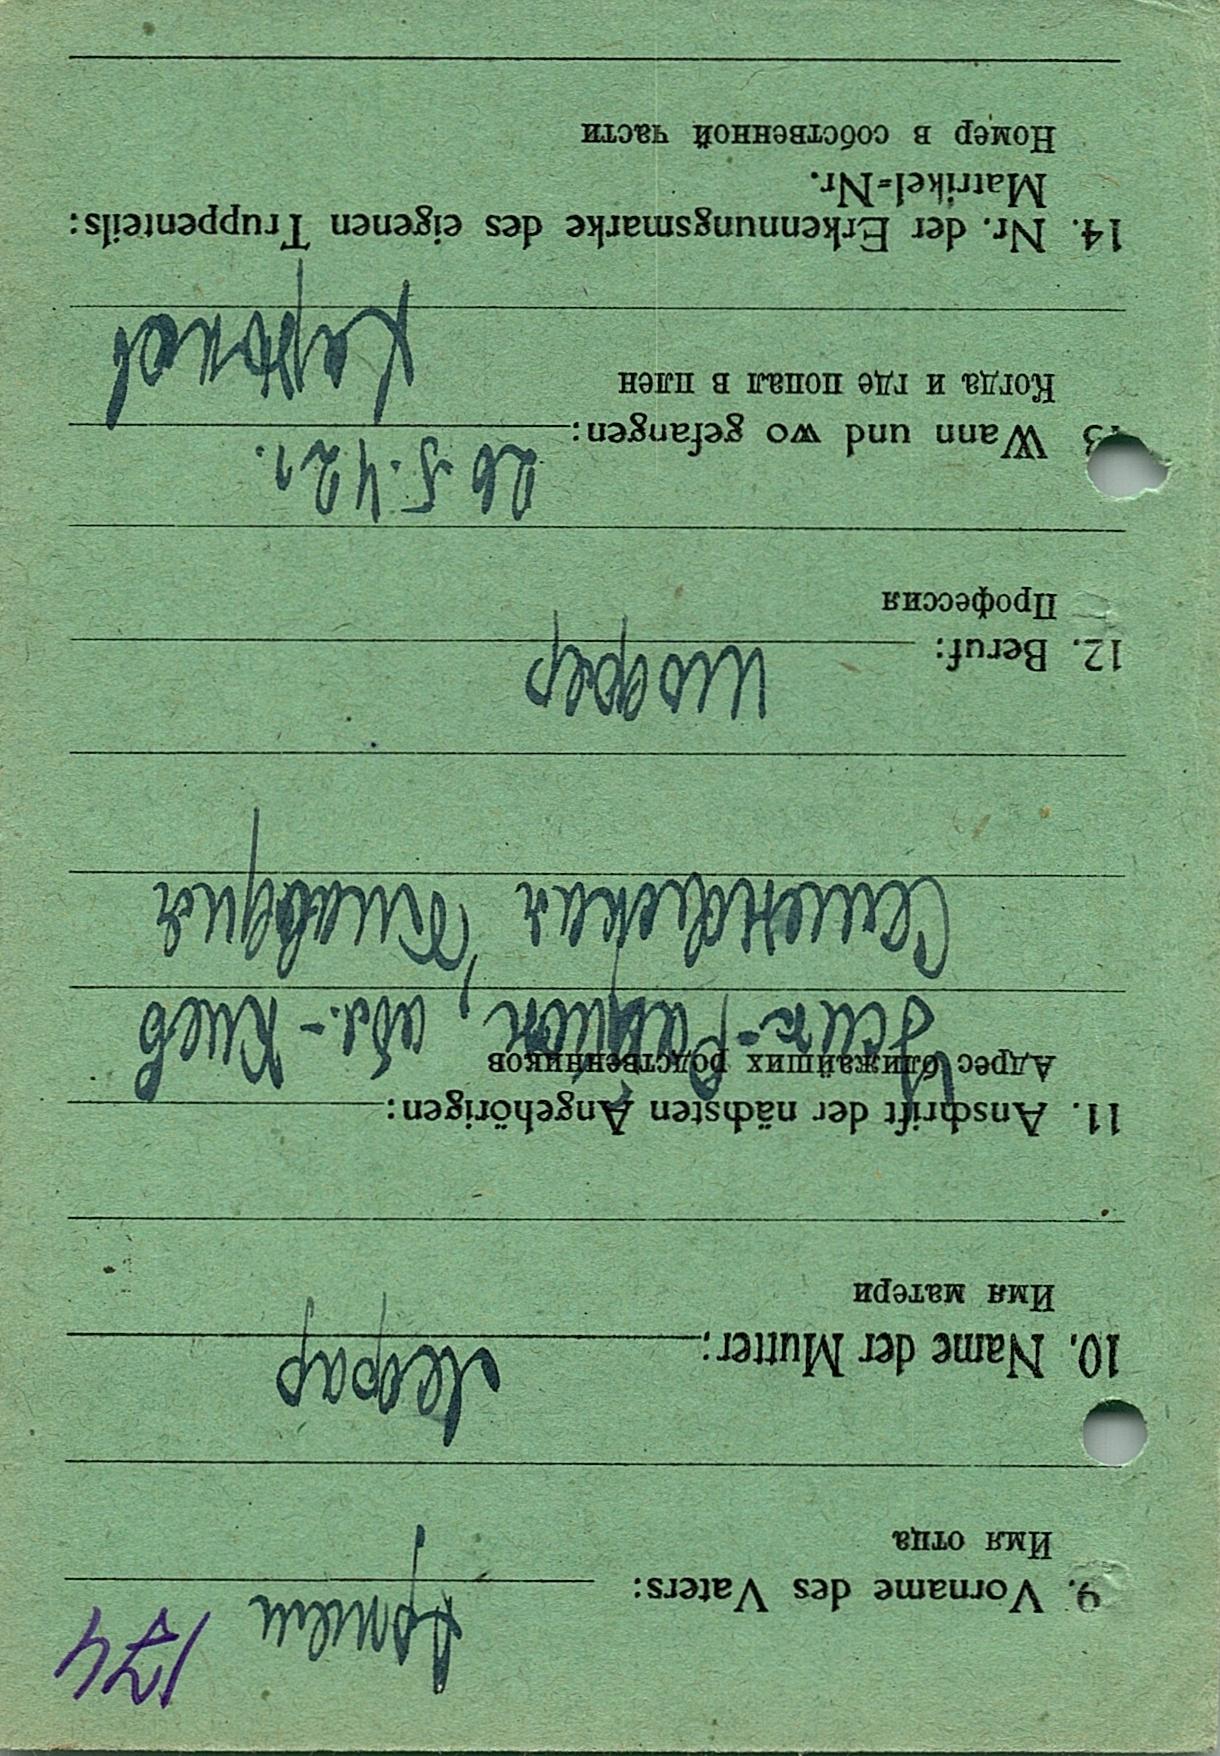 174
9. Vorname des Vaters:
Имя отца
10. Name der Mutter:
Имя матери
11. Anschrift der nächsten Angehörigen:
Адрес ближайших родственников
обл.- Киев
12. Beruf: шофер
Профессия
13 Wann und wo gefangen: 26.5.42 г.
Когда и где попал в плен
Харьков
14. Nr. der Erkennungsmarke des eigenen Truppenteils:
Matrikel=Nr.
Номер в собственной части